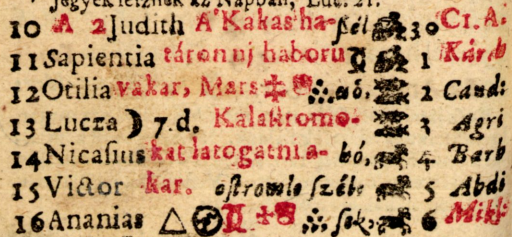 jegyek lesznek az Napban, Luc. 21.
10 A 2 Judith A' Kakas ha- ſzél 30 C1. A.
11 Sapientia táron uj haboru 1 Karáb
12 Otilia vakar, Mars aō, 2 Candi
13 Lucza ☽ 7. d. Kalaſtromo- 3 Agri
14 Nicaſius kat latogatni a- hó, 4 Barb
15 Victor kar. oſtromlo ſzéle 5 Abdi
16 Ananias △ ſok, 6 Mikl